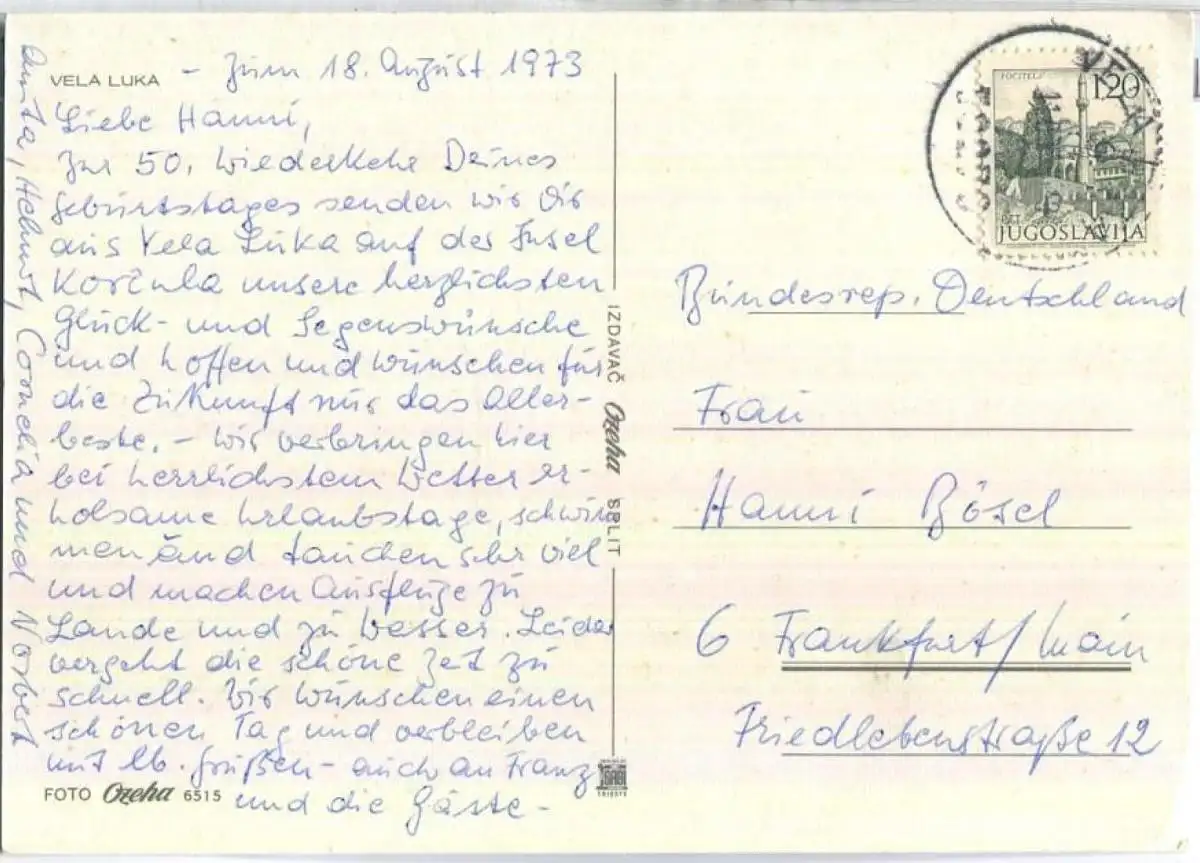 VELA LUKA - Zum 18. August 1973
Liebe Hanni,
zur 50. Wiederkehr Deines
Geburtstages senden wir Dir
aus Vela Luka auf der Insel
Korčula unsere herzlichsten
Glück- und Segenswünsche
und hoffen und wünschen für
die Zukunft nur das Aller-
beste. - Wir verbringen hier
bei herrlichstem Wetter er-
holsame Urlaubstage, schwim
men und tauchen sehr viel
und machen Ausflüge zu
Lande und zu Wasser. Leider
vergeht die schöne Zeit zu
schnell. Wir wünschen einen
schönen Tag und verbleiben
mit lb. Grüßen - auch an Franz
und die Gäste -
Anita, Helmut, Cornelia und Norbert
FOTO Ozeha 6515
IZDAVAČ Ozeha SPLIT
TRIESTE
POČITELJ
1,20
PTT
JUGOSLAVIJA
Bundesrep. Deutschland
Frau
Hanni Bösel
6 Frankfurt/Main
Friedlebenstraße 12